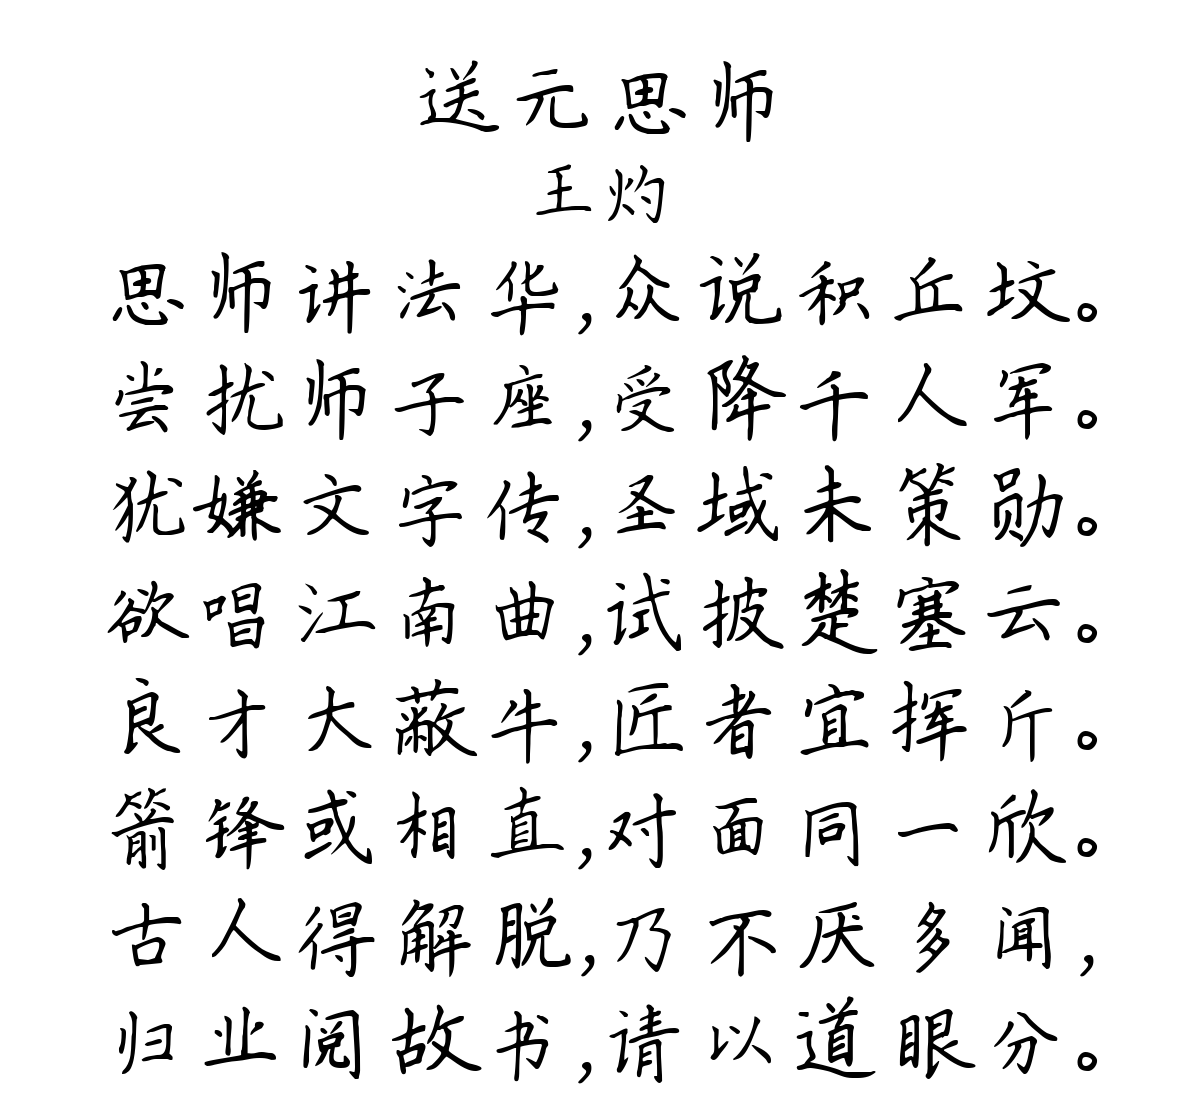 送元思师
王灼
思师讲法华,众说积丘坟。
尝扰师子座,受降千人军。
犹嫌文字传,圣域未策勋。
欲唱江南曲,试披楚塞云。
良才大蔽牛,匠者宜挥斤。
箭锋或相直,对面同一欣。
古人得解脱,乃不厌多闻,
归业阅故书,请以道眼分。